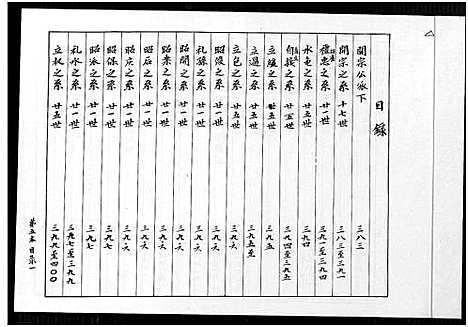 目錄
開宗公派下 三八三
開宗之系 十七世 三八三至三九一
禮忠之系 廿一世 三九一至三九四
永屯之系 廿五世 三九四
自援之系 廿五世 三九四至三九五
立緩之系 廿五世 三九五
立選之系 廿五世 三九五至
立包之系 廿五世 三九六
昭俊之系 廿一世 三九六
礼孫之系 廿一世 三九六
昭開之系 廿一世 三九六
昭素之系 廿一世 三九六
昭后之系 廿一世 三九六
昭庆之系 廿一世 三九六
昭保之系 廿一世 三九七
昭派之系 廿一世 三九七
礼水之系 廿一世 三九七至三九九
立权之系 廿五世 三九九至四〇〇
第五本目录一